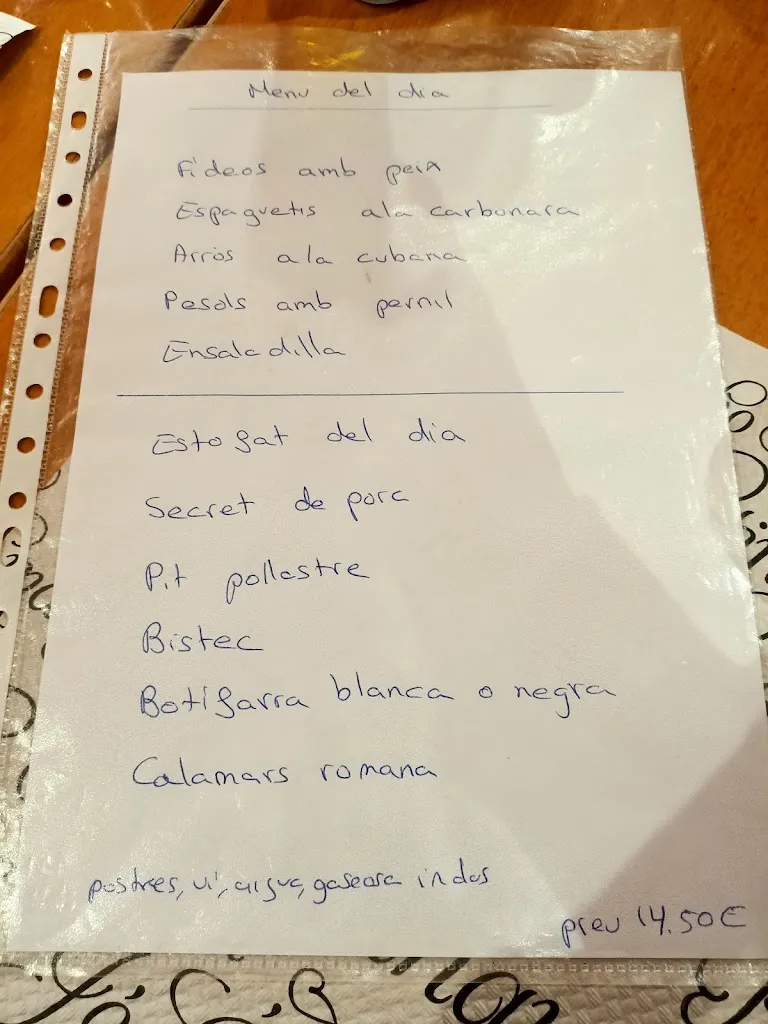 Menu del dia
Fideos amb peix
Espaguetis ala carbonara
Arròs ala cubana
Pesols amb pernil
Ensaladilla
Estofat del dia
Secret de porc
Pit pollastre
Bistec
Botifarra blanca o negra
Calamars romana
postres, vi, aigua, gaseosa inclos
preu 14.50€